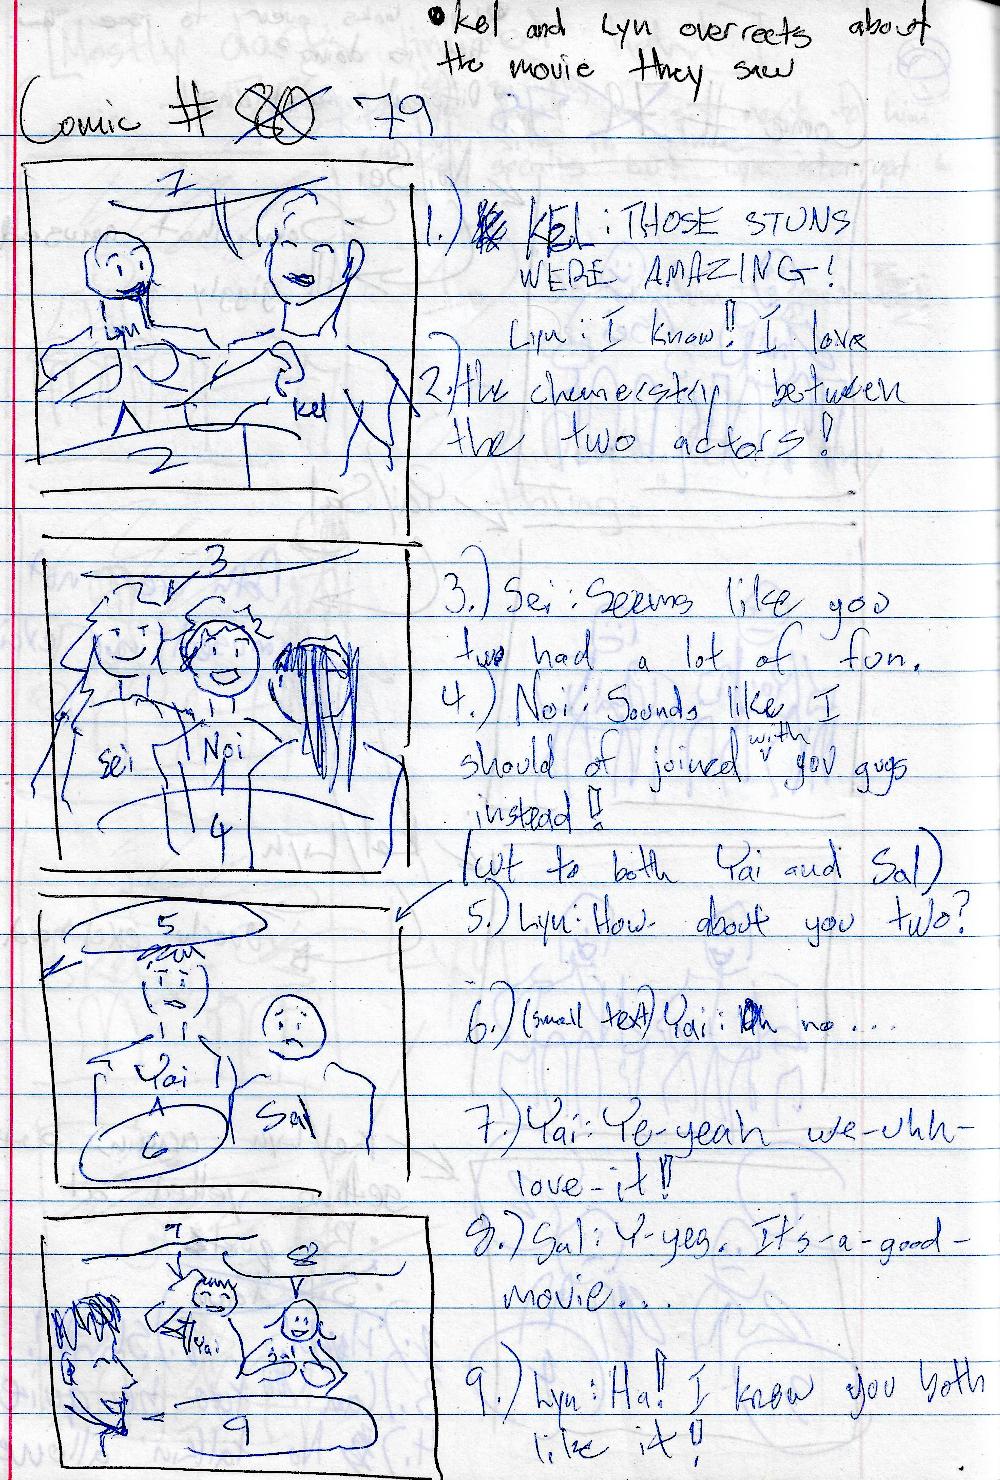 • Kel and Lyn overreets about
the movie they saw
Comic # 80 79
1
Lyn
Kel
2
1.) KEL: THOSE STUNS
WERE AMAZING!
Lyn: I know!! I love
2.) the chemerstry between
the two actors!
3
Sei
Noi
4
3.) Sei: Seems like you
two had a lot of fun.
4.) Noi: Sounds like I
should of joined with you guys
instead!!
(cut to both Yai and Sal)
5
Yai
Sal
6
5.) Lyn: How about you two?
6.) (small text) Yai: Oh no...
7.) Yai: Ye-yeah we-uhh-
love-it!!
7
8
Yai
Sal
9
8.) Sal: Y-yes. It's-a-good-
movie...
9.) Lyn: Ha!! I know you both
like it!!